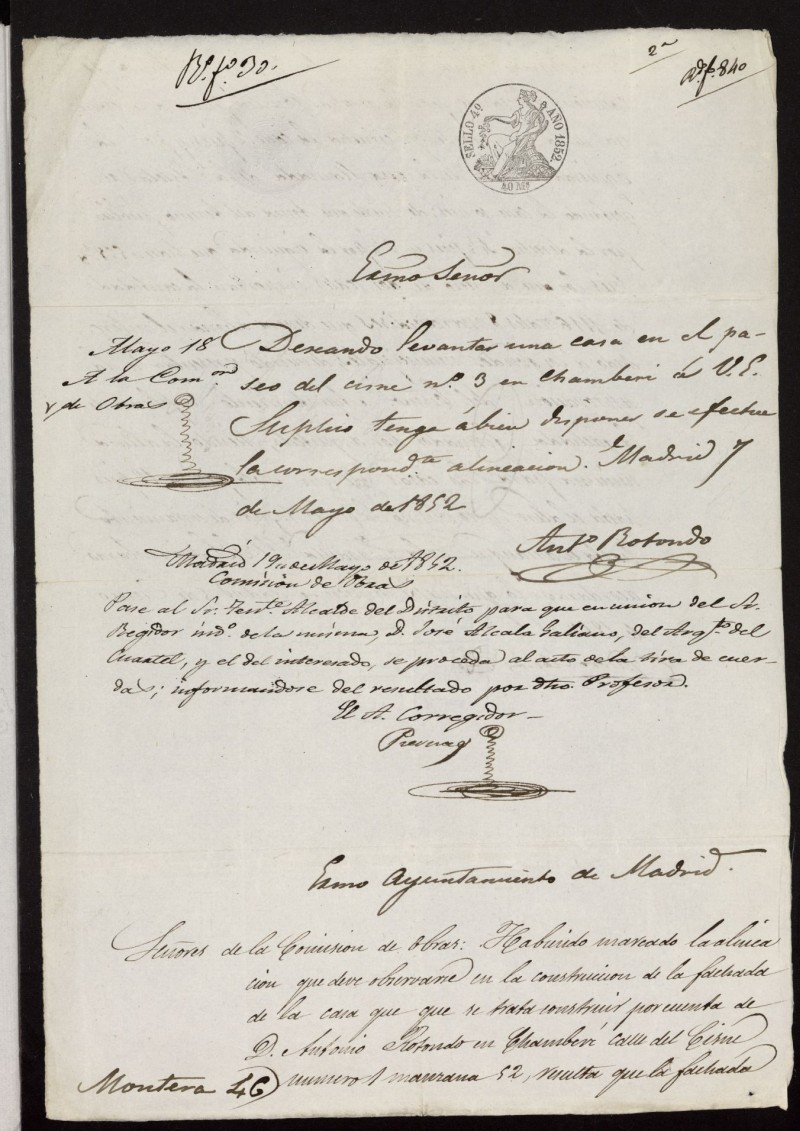 Rº. fº. 30.
2ª
Rº fº 840
SELLO 4º AÑO 1852.
40 Ms
Exmo Señor
Mayo 18
A la Comon
de Obras
Deseando levantar una casa en el pa-
seo del cisne nº. 3 en Chamberi á V.E.
Suplico tenga ábien disponer se efectue
la correspondte. alineacion. Madrid 7
de Mayo de 1852
Anto Rotondo
Madrid 19 de Mayo de 1852.
Comision de Obras
Pase al Sr. Tente. Alcalde del Distrito para que en union del Sr.
Regidor indo. de la misma, D. José Alcala Galiano, del Arqto. del
Cuartel, y el del interesado, se proceda al acto de la tira de cuer-
das; informandose del resultado por dho. Profesor.
El A. Corregidor
Exmo Ayuntamiento de Madrid.
Señores de la Comision de Obras: Habiendo marcado la alinea
cion que deve observarse en la construcion de la fachada
de la casa que que se trata construir por cuenta de
D. Antonio Rotondo en Chamberi calle del Cisne
numero 1 manzana 52, resulta que la fachada
Montera 46